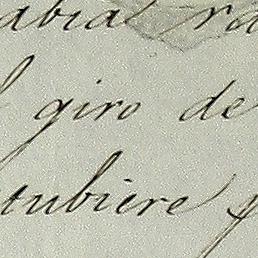 abial
giro de
tubiere